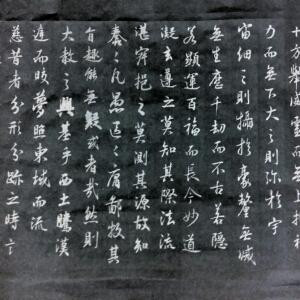 十方舉威靈而無上抑神
力而無下大之則弥於宇
宙細之則攝於豪釐無滅
無生歷千劫而不古若隱
若顯運百福而長今妙道
凝玄遵之莫知其際法流
湛寂挹之莫測其源故知
蠢々凡愚區々庸鄙投其
旨趣能無疑或者哉然則
大教之興基乎西土騰漢
庭而皎夢照東域而流
慈昔者分形分跡之時言